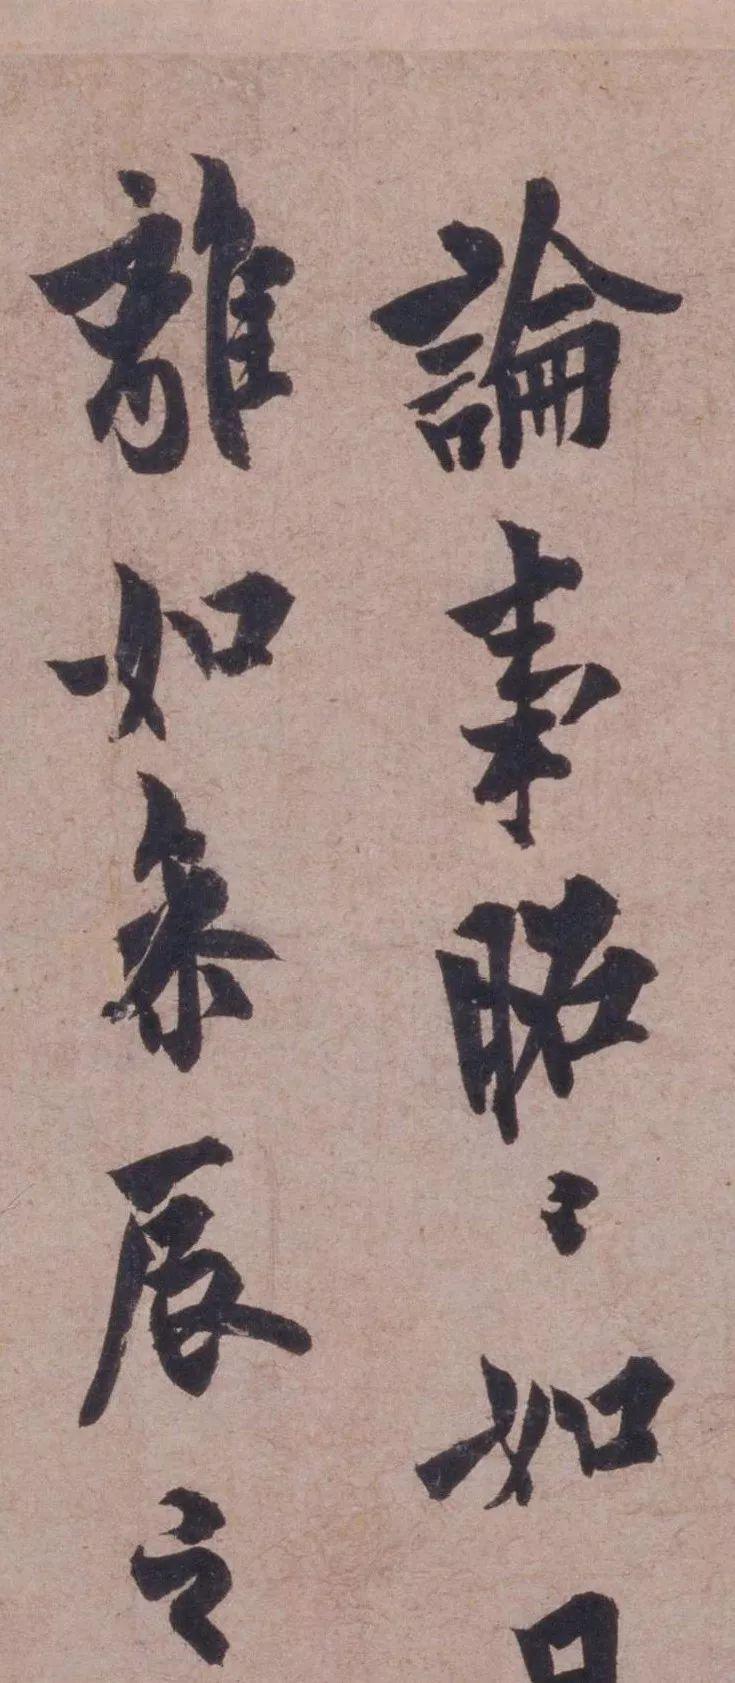 論事昭〻如日
離如叅辰之